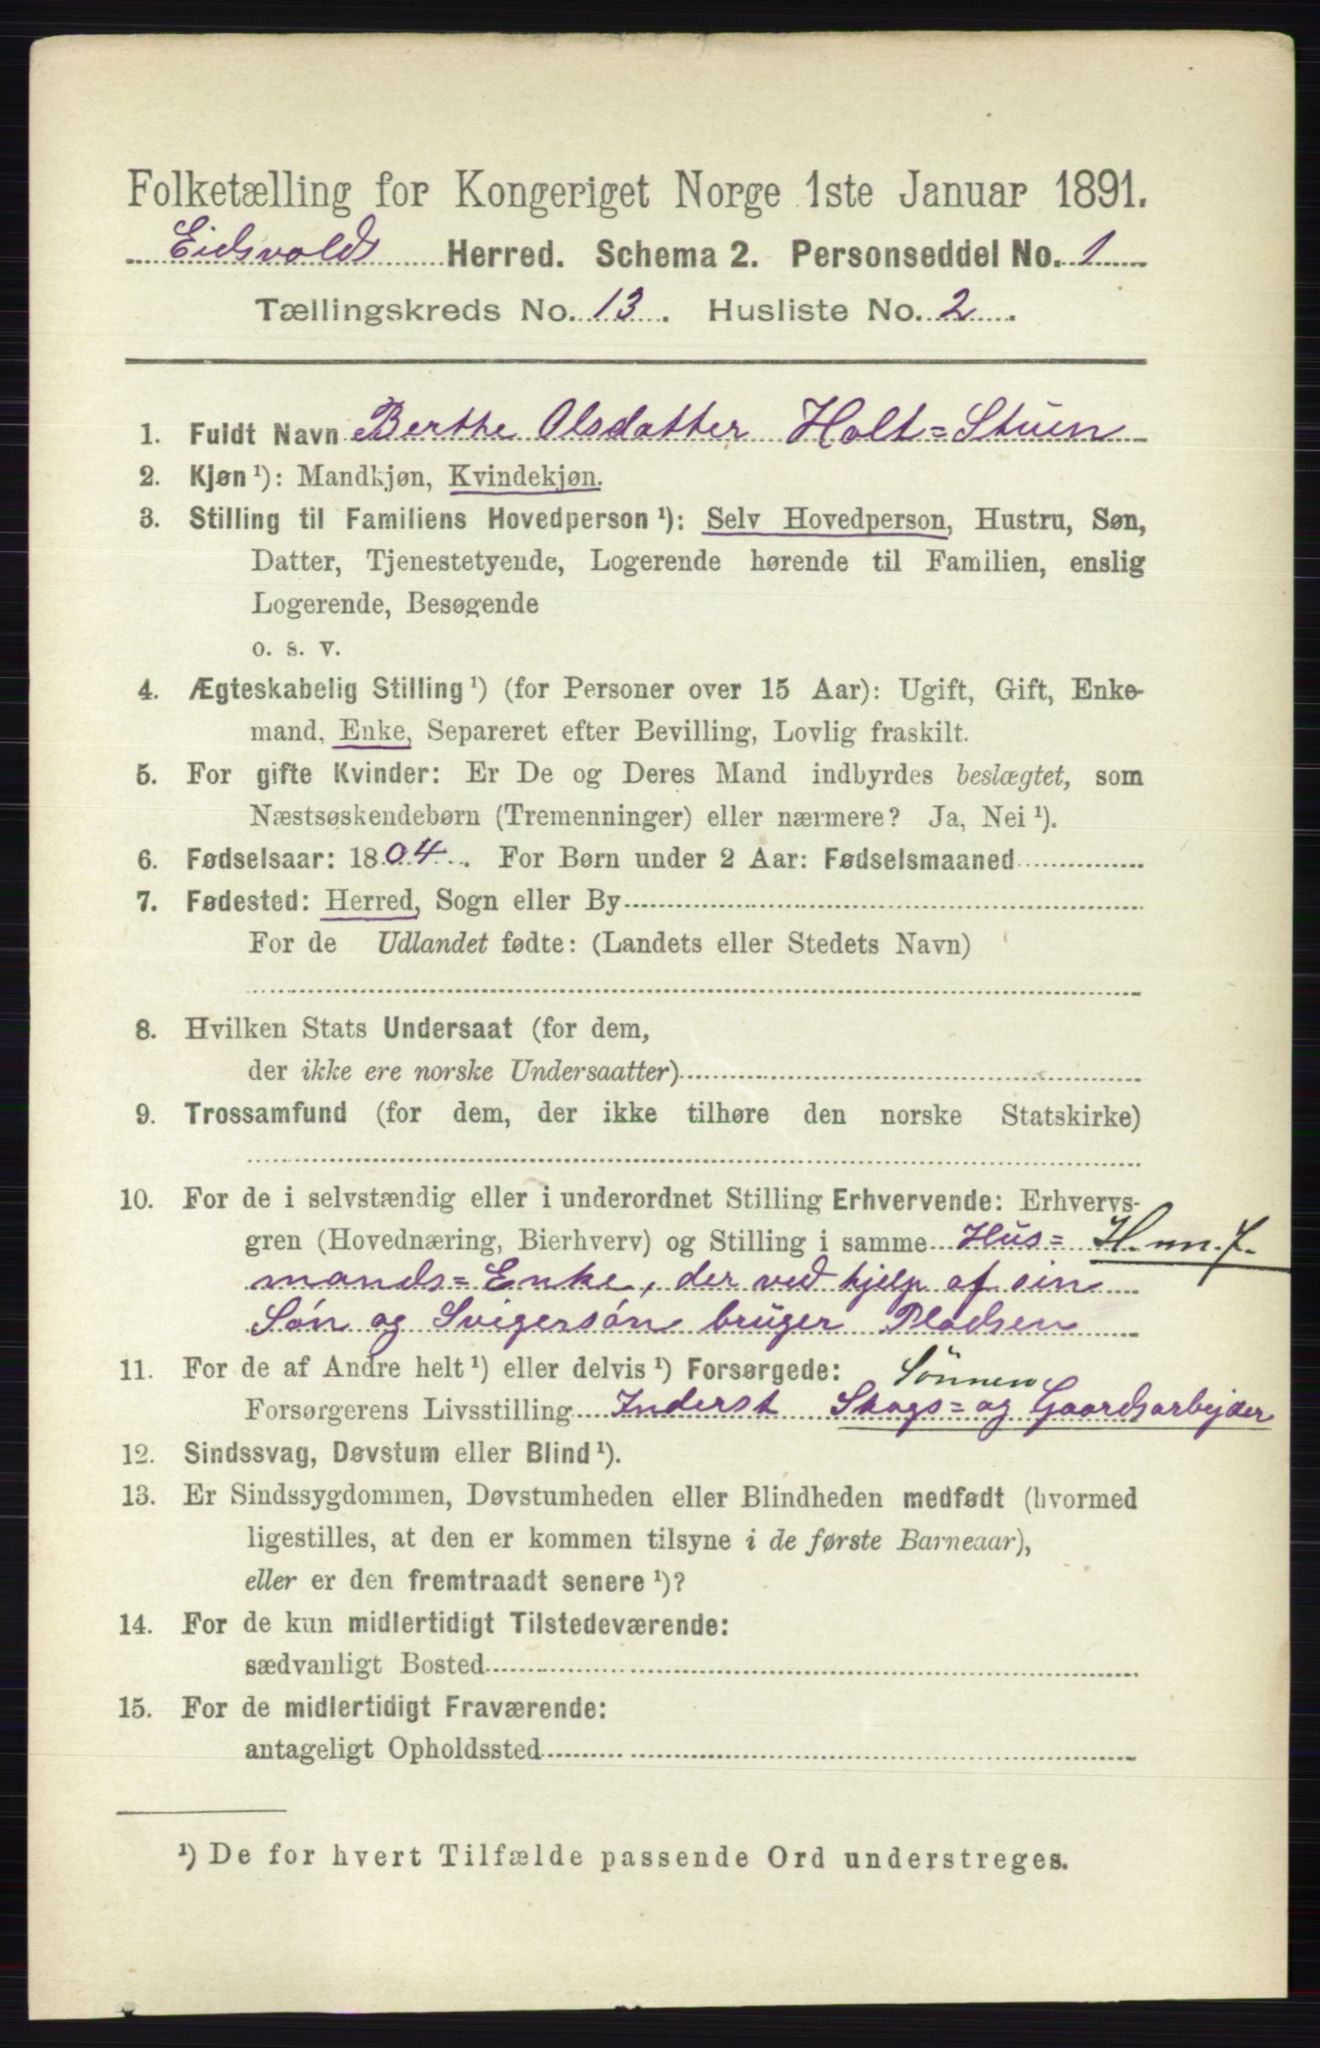 Folketælling for Kongeriget Norge 1ste Januar 1891.
Eidsvolds Herred. Schema 2. Personseddel No. 1
Tællingskreds No. 13. Husliste No. 2.
1. Fuldt Navn Berthe Olsdatter Holt=Stuen
2. Kjøn ¹): Mandkjøn, Kvindekjøn.
3. Stilling til Familiens Hovedperson ¹): Selv Hovedperson, Hustru, Søn,
Datter, Tjenestetyende, Logerende hørende til Familien, enslig
Logerende, Besøgende
o. s. v.
4. Ægteskabelig Stilling ¹) (for Personer over 15 Aar): Ugift, Gift, Enke-
mand, Enke, Separeret efter Bevilling, Lovlig fraskilt.
5. For gifte Kvinder: Er De og Deres Mand indbyrdes beslægtet, som
Næstsøskendebørn (Tremenninger) eller nærmere? Ja, Nei ¹).
6. Fødselsaar: 1804. For Børn under 2 Aar: Fødselsmaaned
7. Fødested: Herred, Sogn eller By
For de Udlandet fødte: (Landets eller Stedets Navn)
8. Hvilken Stats Undersaat (for dem,
der ikke ere norske Undersaatter)
9. Trossamfund (for dem, der ikke tilhøre den norske Statskirke)
10. For de i selvstændig eller i underordnet Stilling Erhvervende: Erhvervs-
gren (Hovednæring, Bierhverv) og Stilling i samme Hus= H. m. f.
mands=Enke, der ved hjelp af sin
Søn og Svigersøn bruger Pladsen
11. For de af Andre helt ¹) eller delvis ¹) Forsørgede: Sønnen
Forsørgerens Livsstilling Inderst Skogs= og Gaardsarbejder
12. Sindssvag, Døvstum eller Blind ¹).
13. Er Sindssygdommen, Døvstumheden eller Blindheden medfødt (hvormed
ligestilles, at den er kommen tilsyne i de første Barneaar),
eller er den fremtraadt senere ¹)?
14. For de kun midlertidigt Tilstedeværende:
sædvanligt Bosted
15. For de midlertidigt Fraværende:
antageligt Opholdssted
¹) De for hvert Tilfælde passende Ord understreges.